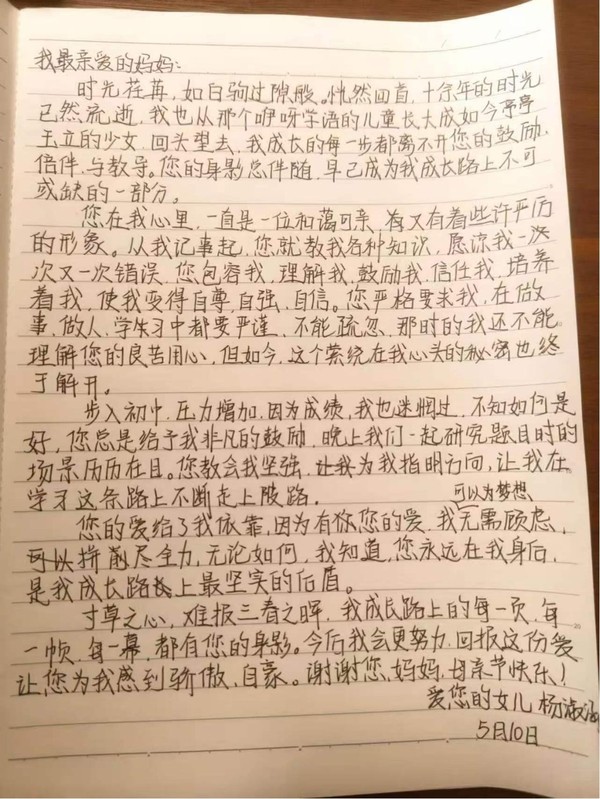 我最亲爱的妈妈:
时光荏苒，如白驹过隙般。恍然回首，十余年的时光
已然流逝，我也从那个咿呀学语的儿童长大成如今亭亭
玉立的少女，回头望去，我成长的每一步都离不开您的鼓励、
倍伴、与教导。您的身影总伴随，早已成为我成长路上不可
或缺的一部分。
您在我心里，一直是一位和蔼可亲、又有着些许严厉
的形象。从我记事起，您就教我各种知识，愿谅我一次
次又一次错误，您包容我，理解我，鼓励我，信任我，培养
着我，使我变得自尊、自强、自信。您严格要求我，在做
事、做人、学习中都要严谨，不能疏忽，那时的我还不能
理解您的良苦用心，但如今，这个萦绕在我心头的秘密也终
于解开。
步入初中，压力增加，因为成绩，我也迷惘过，不知如何是
好，您总是给予我非凡的鼓励，晚上我们一起研究题目时的
场景历历在目。您教会我坚强，为我指明方向，让我在
学习这条路上不断走上陂路.
可以为梦想
您的爱给了我依靠，因为有你您的爱，我无需顾虑，
拼搏尽全力，无论如何，我知道，您永远在我身后，
是我成长路上最坚实的后盾。
寸草之心，难报三春之晖，我成长路上的每一页、每
一帧、每一幕，都有您的身影。今后我会更努力，回报这份爱
让您为我感到骄傲、自豪。谢谢您，妈妈，母亲节快乐！
爱您的女儿 杨淑
5月10日